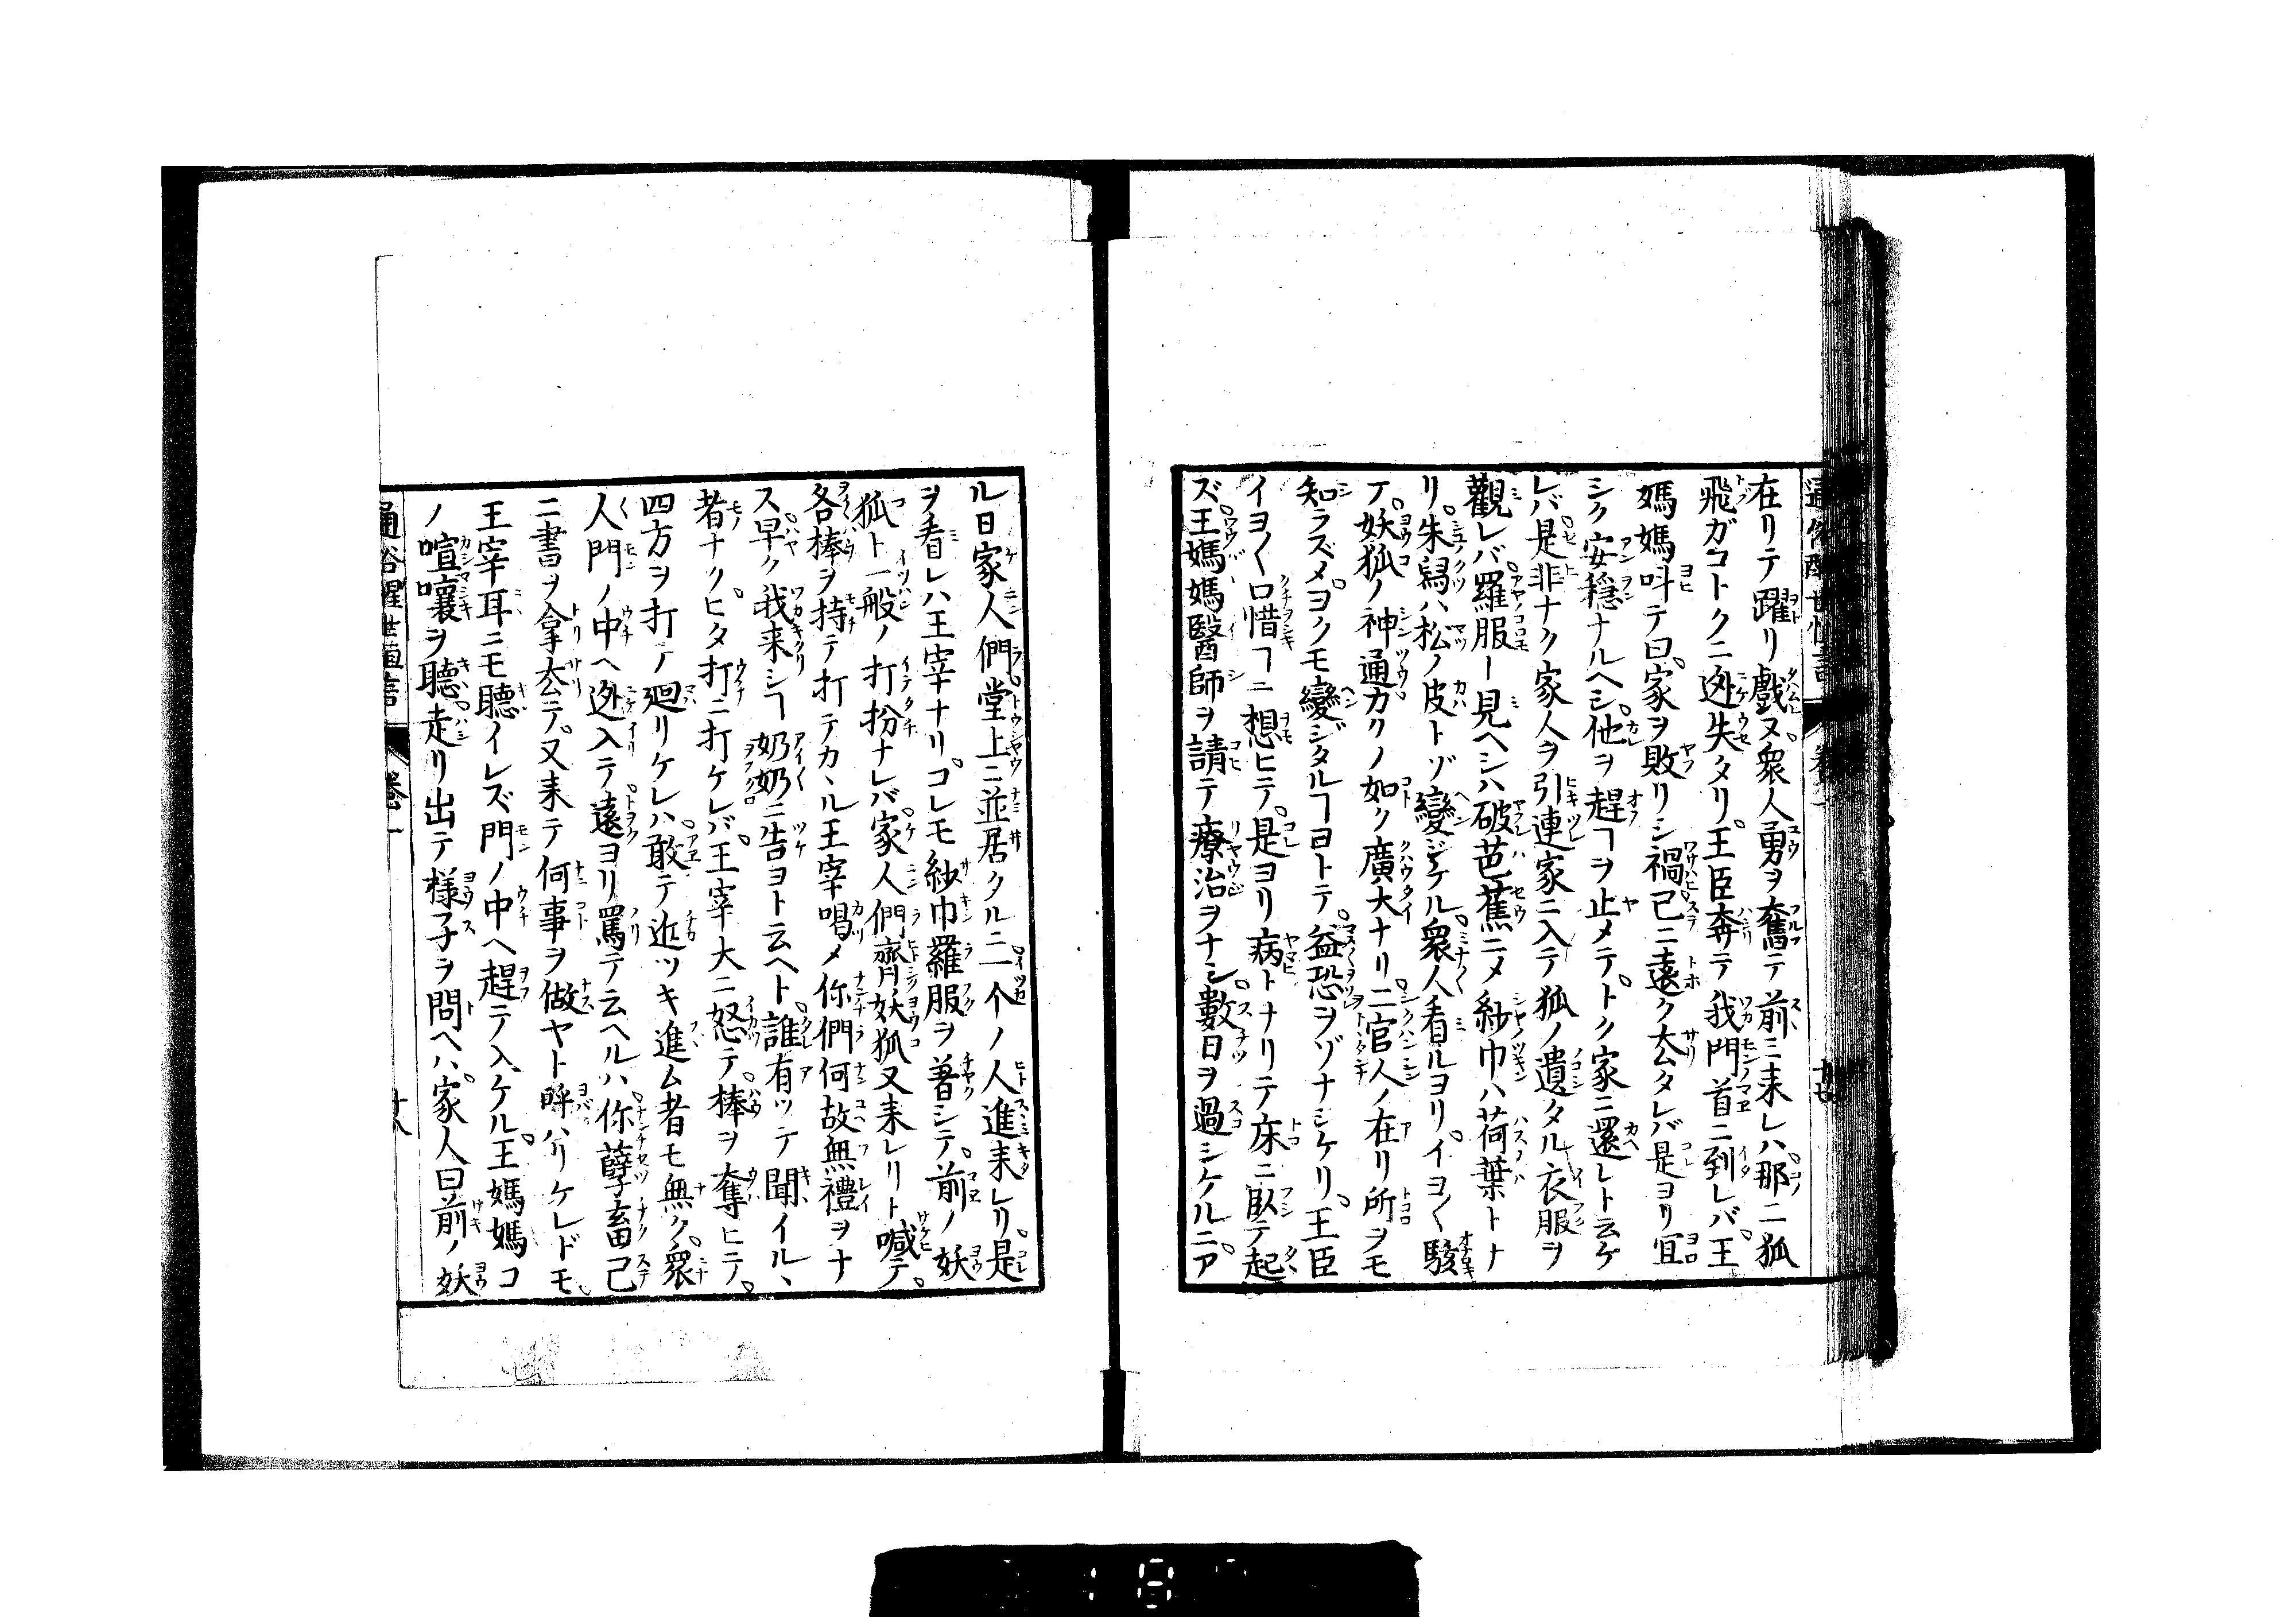 在リテ躍リ戲ヌ衆人勇ヲ奮テ前ミ来レハ那二狐
飛ガコトクニ迯失タリ王臣奔テ我門首ニ到レバ王
媽媽呌テ曰家ヲ敗リシ禍已ニ遠ク去タレバ是ヨリ宜
シク安穏ナルヘシ他ヲ趕ヿヲ止メテトク家ニ還レト云ケ
レバ是非ナク家人ヲ引連家ニ入テ狐ノ遺タル衣服ヲ
觀レバ羅服ト見ヘシハ破芭蕉ニメ紗巾ハ荷葉トナ
リ朱舄ハ松ノ皮トゾ變ジケル衆人看ルヨリイヨ〱駭
ア妖狐ノ神通カクノ如ク廣大ナリ二官人ノ在リ所ヲモ
知ラズメヨクモ變ジタルヿヨトテ益恐ヲゾナシケリ王臣
イヨ〱口惜ヿニ想ヒテ是ヨリ病トナリテ床ニ臥テ起
ズ王媽媽醫師ヲ請テ療治ヲナシ數日ヲ過シケルニア
通俗醒世恒言 卷一
ル日家人們堂上ニ並居タルニ一个ノ人進来レリ是
ヲ看レハ王宰ナリコレモ紗巾羅服ヲ著シテ前ノ妖
狐ト一般ノ打扮ナレバ家人們齊妖狐又来レリト喊テ
各棒ヲ持テ打テカヽル王宰喝メ你們何故無禮ヲナ
ス早ク我来シヿ奶奶ニ告ヨト云ヘト誰有ッテ聞イルヽ
者ナクヒタ打ニ打ケレバ王宰大ニ怒テ棒ヲ奪ヒテ
四方ヲ打テ廻リケレハ敢テ近ツキ進ム者モ無ク衆
人門ノ中ヘ迯入テ遠ヨリ罵テ云ヘルハ你孽畜已
ニ書ヲ拿去テ又来テ何事ヲ做ヤト呼ハリケレドモ
王宰耳ニモ聽イレズ門ノ中ヘ趕テ入ケル王媽媽コ
ノ喧嚷ヲ聽走リ出テ様子ヲ問ヘハ家人曰前ノ妖
通俗醒世恒言 卷一 十八